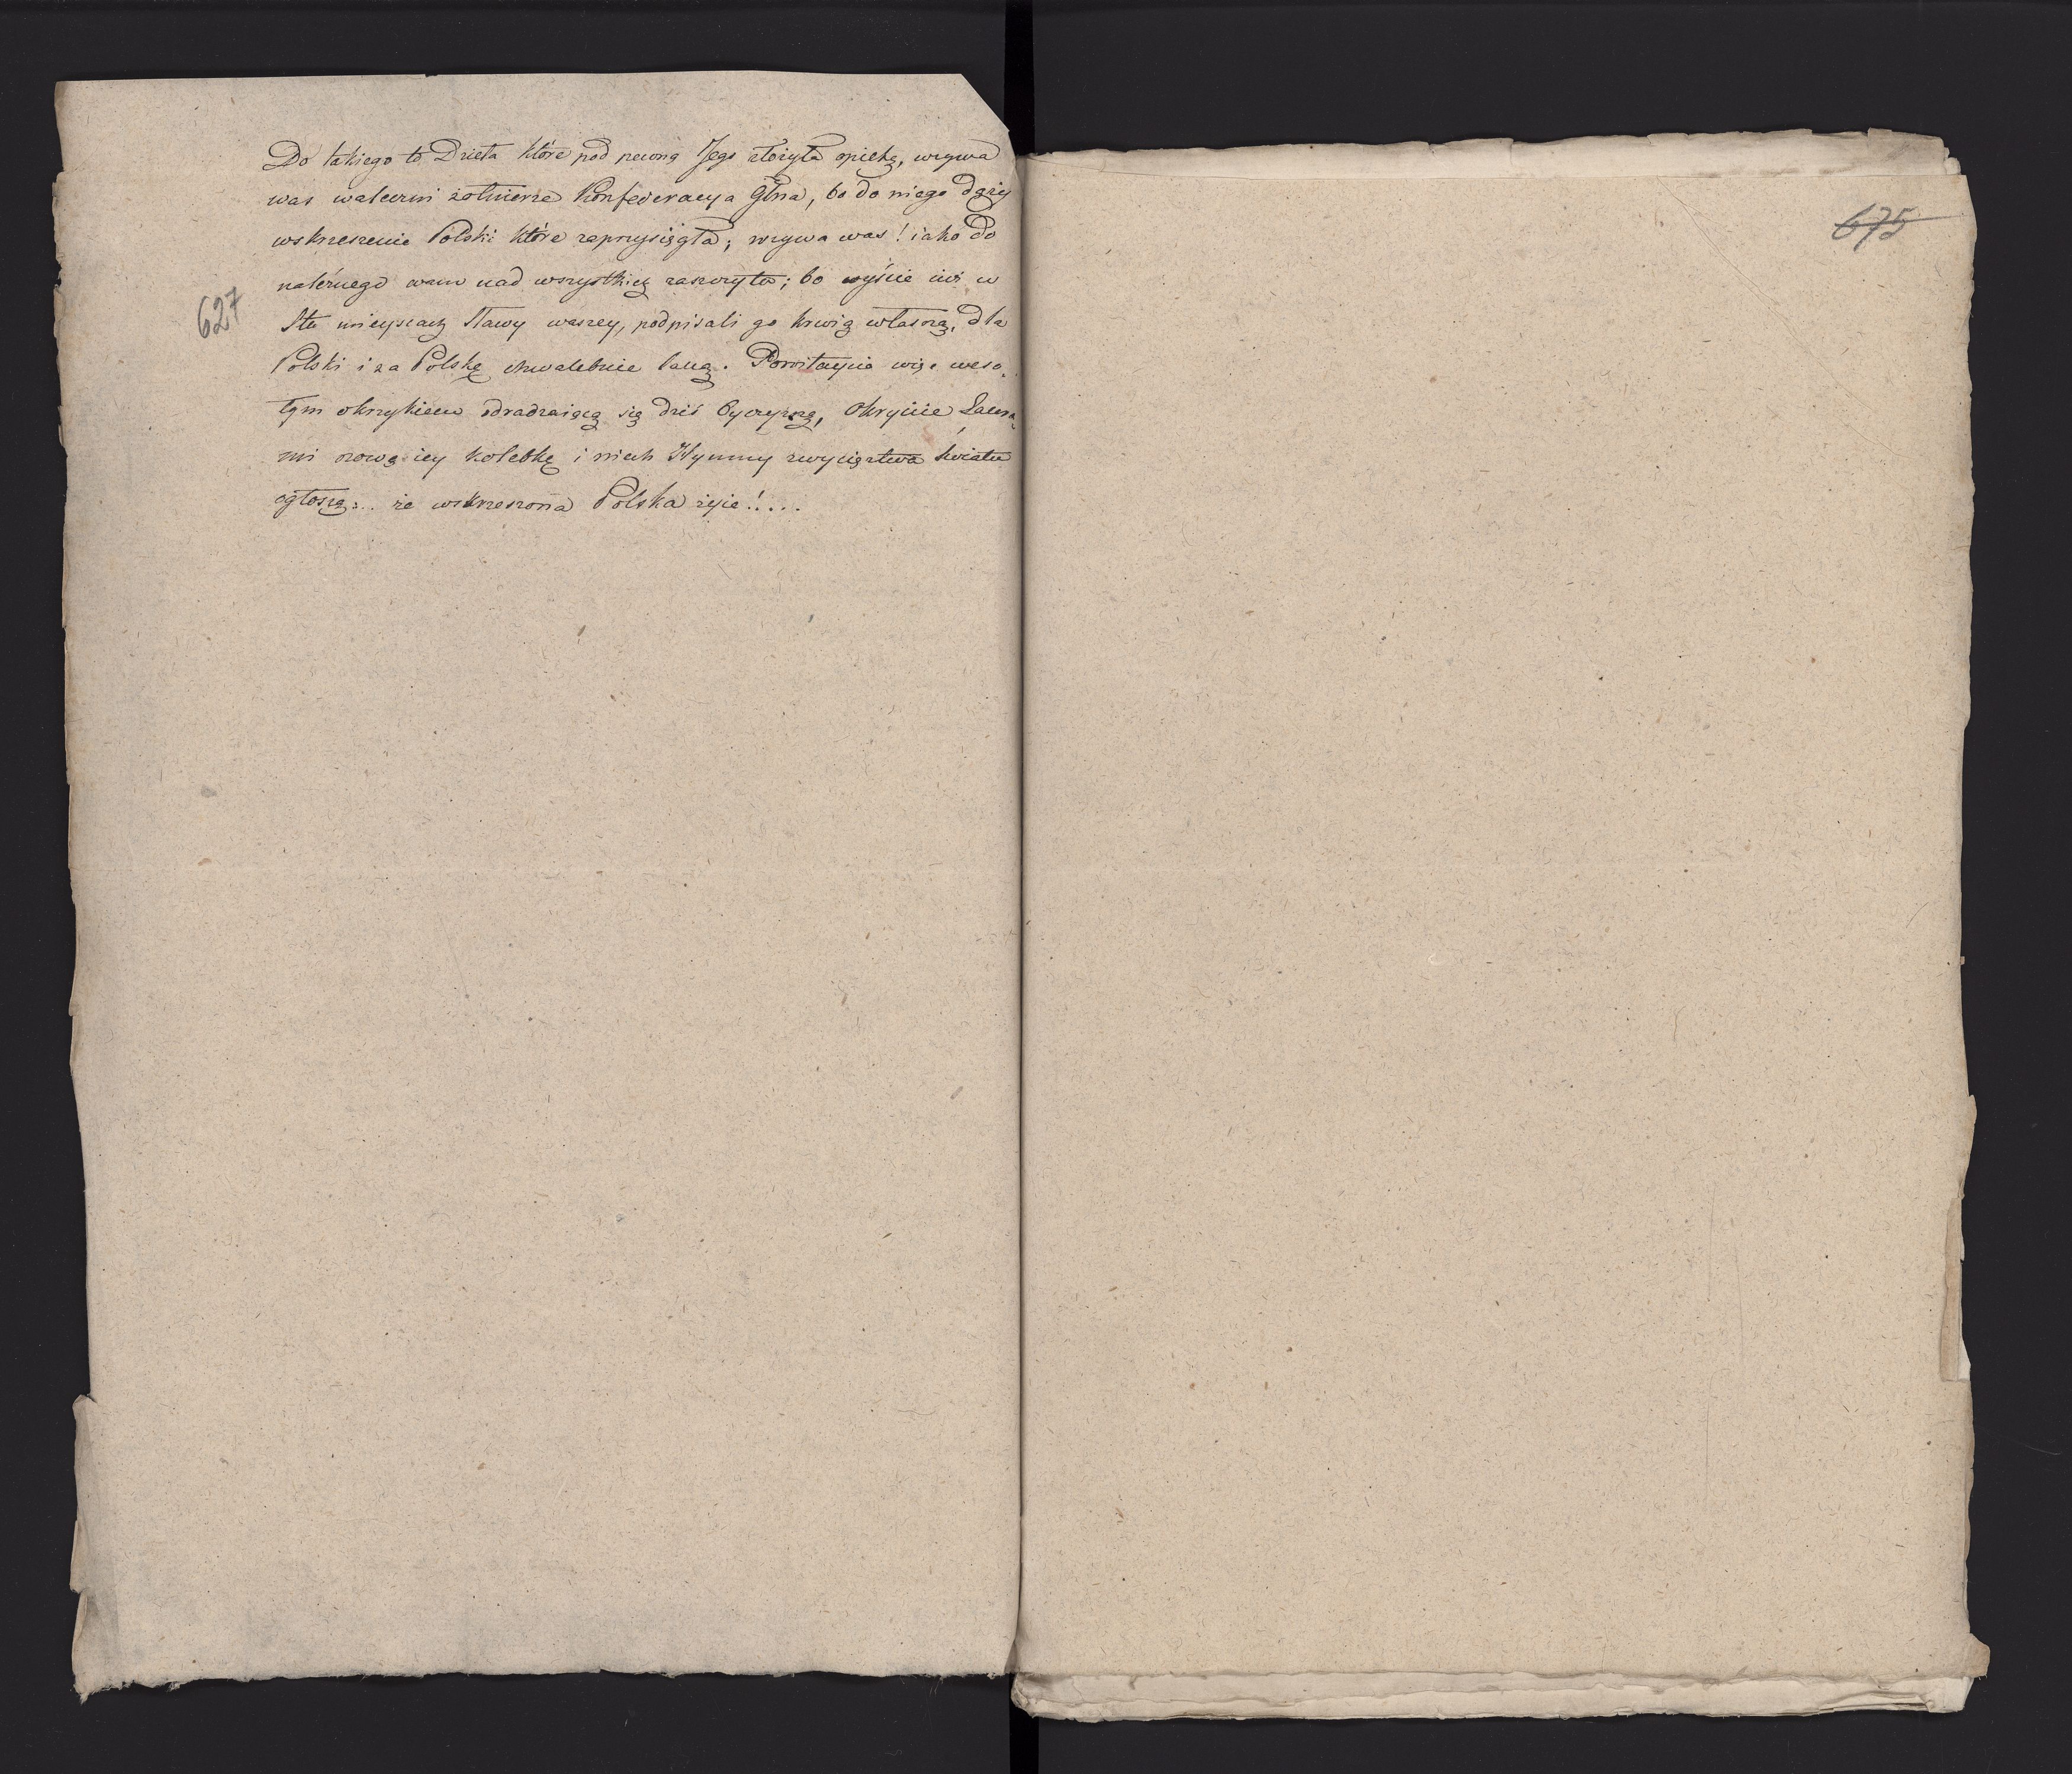 Do takiego to Dzieła które pod pewną Jego złożyła opieką, wzywa
was waleczni żołnierze Konfederacya Głna, bo do niego dąży
wskrzeszenie Polski które zaprzysięgła; wzywa was! iako do
należnego wam nad wszystkich zaszczytu; bo wyście iuż w
627
Stu mieyscach sławy waszey, podpisali go krwią własną, dla
Polski i za Polskę chwalebnie laną. Powitaycie więc weso-
łym okrzykiem odradzaiącą się dziś Oyczyznę, okryicie Laura-
mi nową iey kolebkę i niech Hymny zwycięztwa światu
ogłoszą... że wskrzeszona Polska żyie!....
675